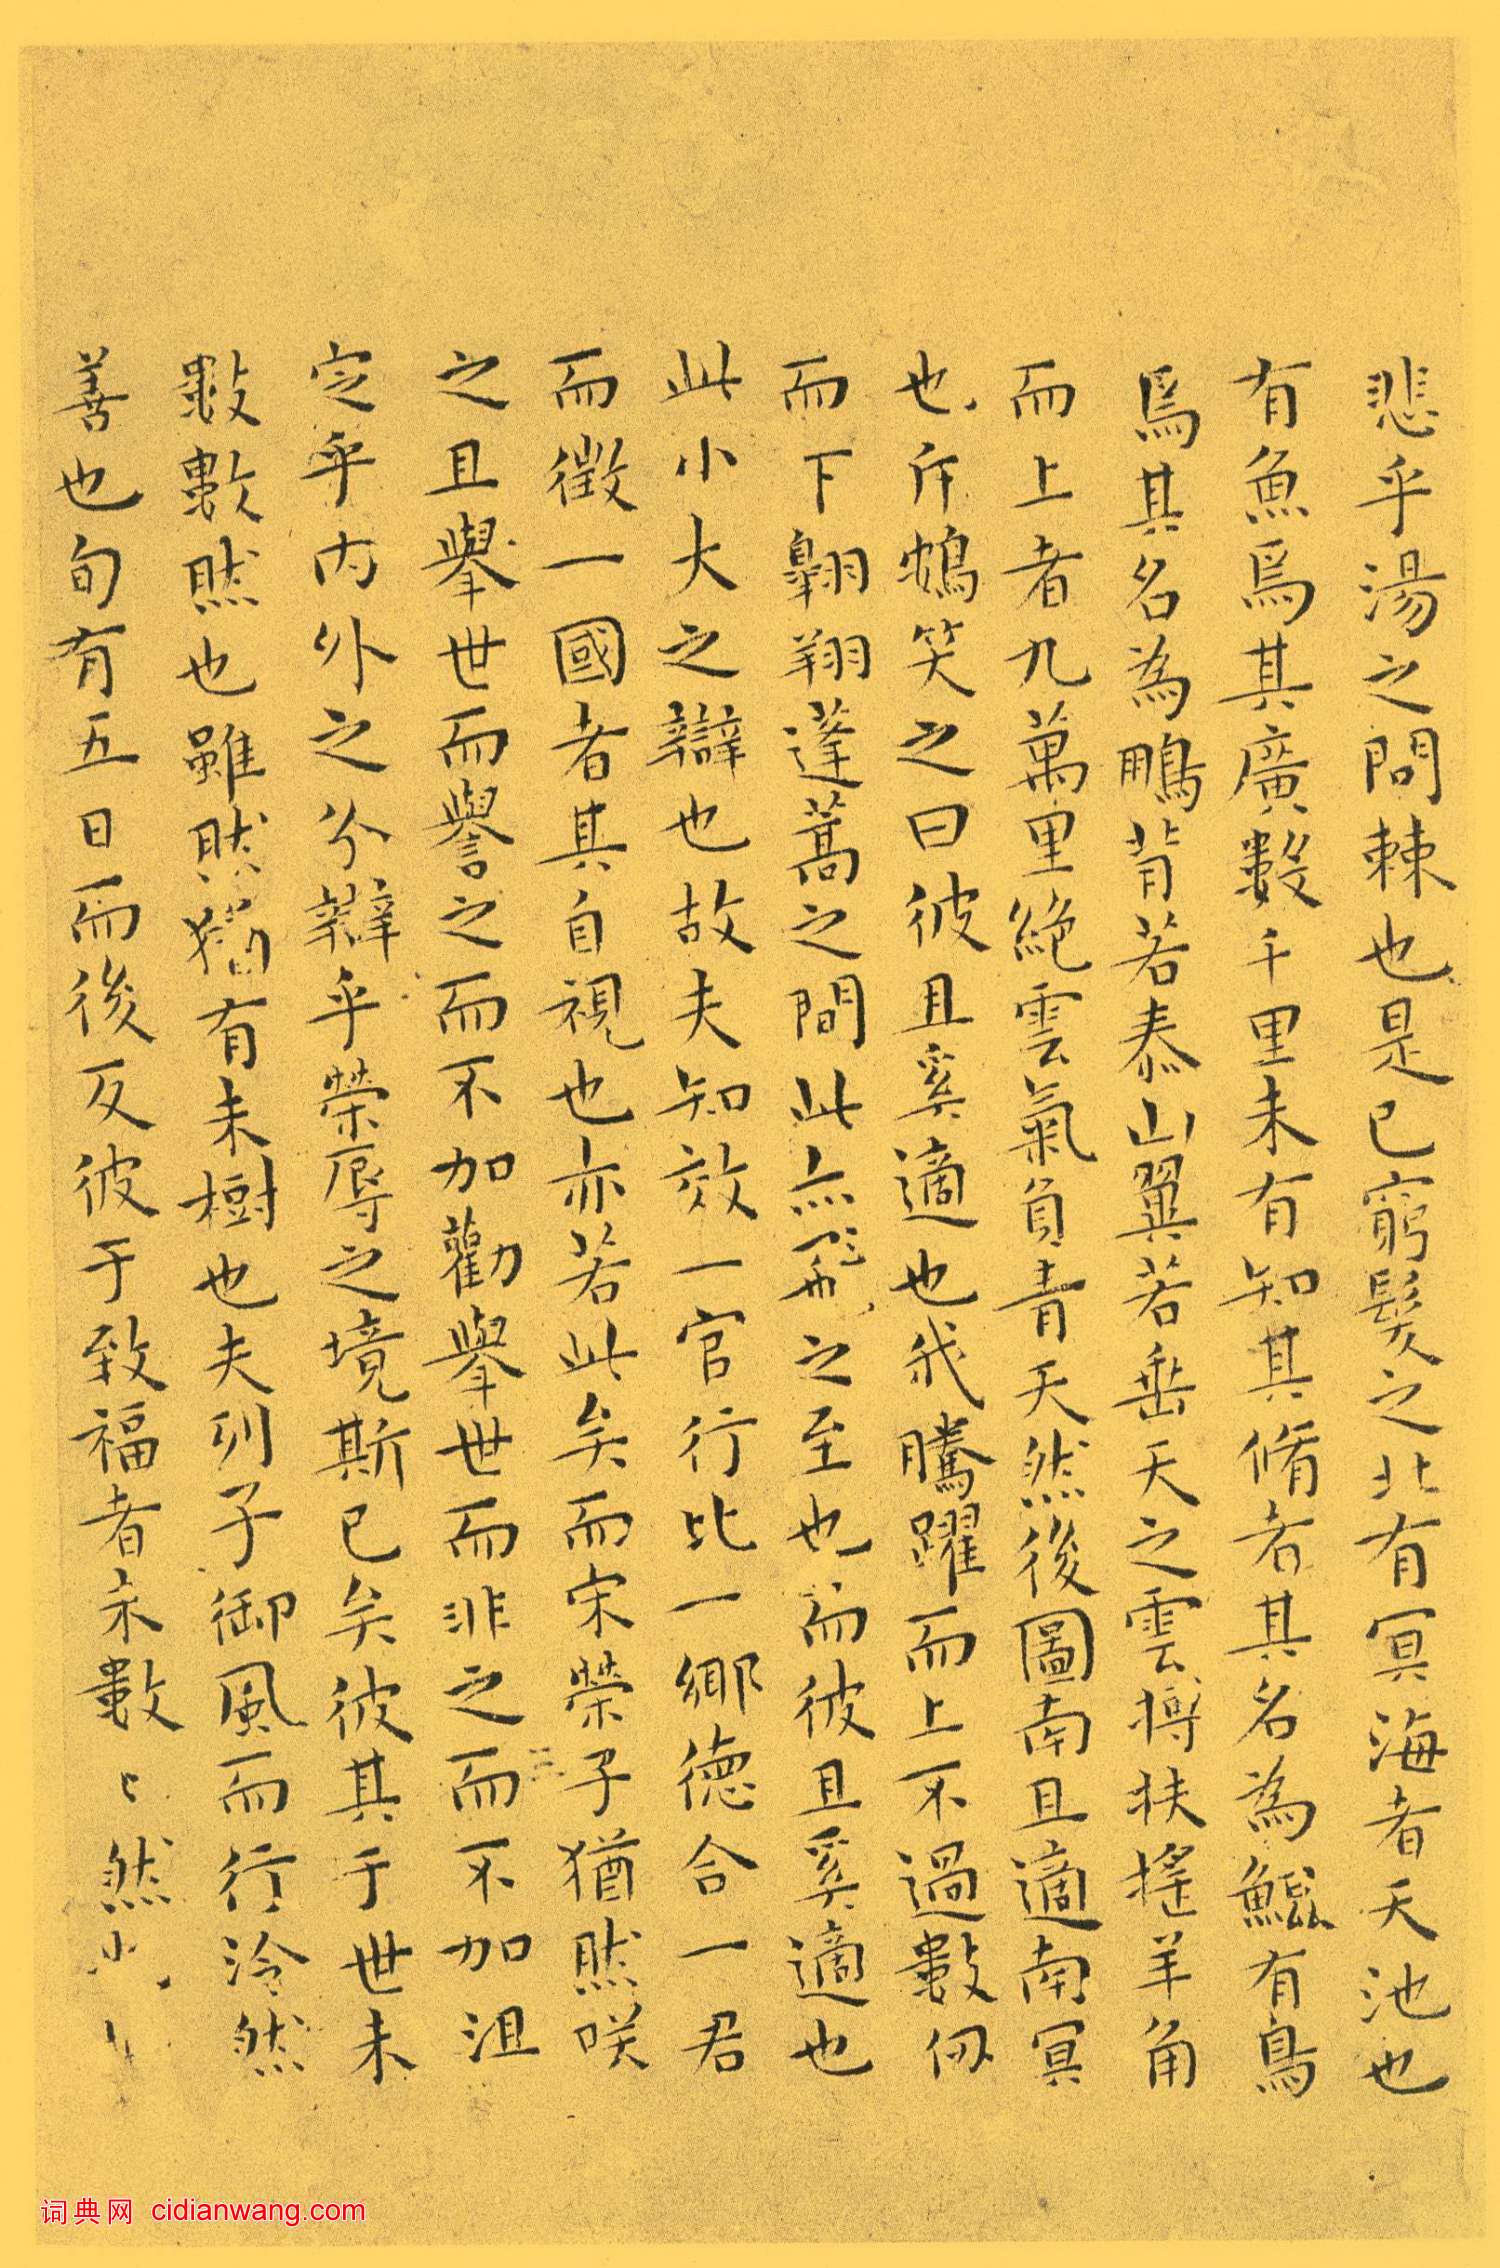 悲乎湯之問棘也是已窮髮之北有冥海者天池也
有魚焉其廣數千里未有知其脩者其名為鯤有鳥
焉其名為鵬背若泰山翼若垂天之雲摶扶搖羊角
而上者九萬里絕雲氣負青天然後圖南且適南冥
也斥鴳笑之曰彼且奚適也我騰躍而上不過數仞
而下翱翔蓬蒿之間此亦飛之至也而彼且奚適也
此小大之辯也故夫知效一官行比一鄉德合一君
而徵一國者其自視也亦若此矣而宋榮子猶然咲
之且舉世而譽之而不加勸舉世而非之而不加沮
定乎內外之分辯乎榮辱之境斯已矣彼其于世未
數數然也雖然猶有未樹也夫列子御風而行泠然
善也旬有五日而後反彼于致福者未數〻然
词典网 cidianwang.com